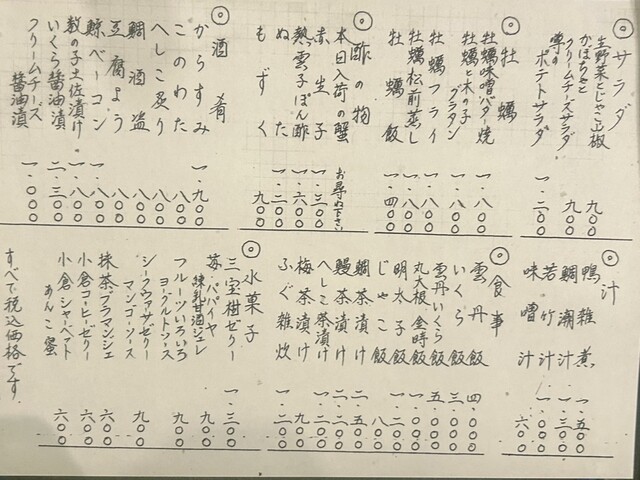 ◎サラダ
生野菜とじゃこ山椒 九〇〇
かぼちゃと
クリームチーズサラダ 九〇〇
噂の
ポテトサラダ 一.二〇〇
◎牡蠣
牡蠣味噌バター焼 一.八〇〇
牡蠣と木の子
グラタン 一.八〇〇
牡蠣フライ 一.八〇〇
牡蠣松前蒸し 一.八〇〇
牡蠣飯 一.四〇〇
◎酢の物
本日入荷の蟹 お尋ね下さい
赤生子 一.三〇〇
熱雲子ぽん酢 一.六〇〇
ぬた 一.二〇〇
もずく 九〇〇
◎酒肴
からすみ 一.九〇〇
このわた 八〇〇
へしこ炙り 八〇〇
鯛酒盗 八〇〇
豆腐よう 八〇〇
鯨ベーコン 一.八〇〇
数の子土佐漬け 一.〇〇〇
いくら醤油漬 二.三〇〇
クリームチーズ
醤油漬 一.〇〇〇
◎汁
鴨雑煮 一.五〇〇
鯛潮汁 一.三〇〇
若竹汁 一.〇〇〇
味噌汁 六〇〇
◎食事
雲丹飯 四.〇〇〇
いくら飯 三.〇〇〇
雲丹いくら飯 五.〇〇〇
丸大根、金時飯 一.〇〇〇
明太子飯 一.二〇〇
じゃこ飯 八〇〇
鯛茶漬け 二.五〇〇
鰻茶漬け 二.二〇〇
へしこ茶漬け 一.二〇〇
梅茶漬け 九〇〇
ふぐ雑炊 一.二〇〇
◎水菓子
三宝樹ゼリー 一.三〇〇
苺・パパイヤ
練乳甘酒ジュレ 九〇〇
フルーツいろいろ
ヨーグルトソース 九〇〇
シークヮサーゼリー
マンゴーソース 九〇〇
抹茶ブラマンジェ 六〇〇
小倉コーヒーゼリー 六〇〇
小倉シャーベット
あんこ蜜 六〇〇
すべて税込価格です。